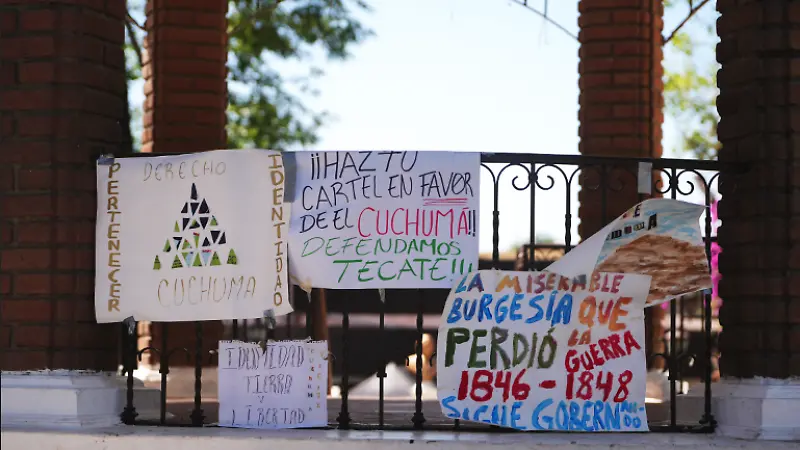 DERECHO
PERTENECER
IDENTIDAD
CUCHUMA
¡¡HAZ TU
CARTEL EN FAVOR
DE EL CUCHUMÁ!!
DEFENDAMOS
TECATE!!!
IDENTIDAD
TIERRA
Y
LIBERTAD
CUCHUMA
LA MISERABLE
BURGESÍA QUE
PERDIÓ LA
GUERRA
1846-1848
SIGUE GOBERNANDO